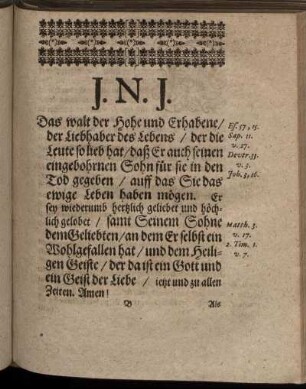 J. N. J.
Das walt der Hohe und Erhabene/
der Liebhaber des Lebens / der die
Leute so lieb hat/ daß Er auch seinen
eingebohrnen Sohn für sie in den
Tod gegeben / auff das Sie das
ewige Leben haben mögen. Er
sey wiederumb hertzlich geliebet und höch-
lich gelobet / samt Seinem Sohne
dem Geliebten/ an dem Er selbst ein
Wohlgefallen hat / und dem Heili-
gen Geiste / der da ist ein Gott und
ein Geist der Liebe / ietzt und zu allen
Zeiten. Amen!
B Als
Es. 57, 15.
Sap. 11.
v. 27.
Deutr. 33.
v. 3.
Joh. 3, 16.
Matth. 3.
v. 17.
2. Tim. 1.
v. 7.